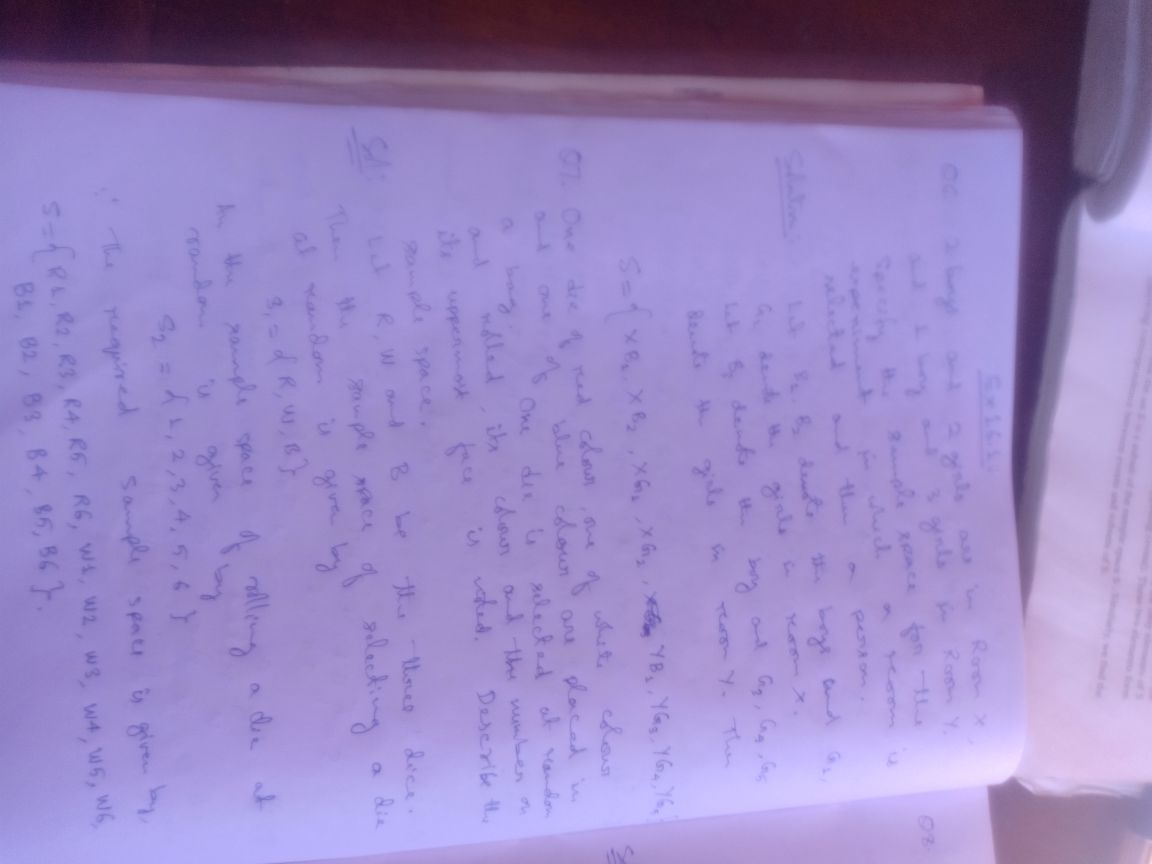 Ex 16.1.
Q6. 2 boys and 2 girls are in Room X,
and 1 boy and 3 girls in Room Y.
Specify the sample space for the
experiment in which a room is
selected and then a person.
Solution: Let B1, B2 denote the boys and G1,
G2 denote the girls in room X.
Let B3 denote the boy and G3, G4, G5
denote the girls in room Y. Then
S = { XB1, XB2, XG1, XG2, YB3, YG3, YG4, YG5
Q7. One die of red colour, one of white colour
and one of blue colour are placed in
a bag. One die is selected at random
and rolled, its colour and the number on
its uppermost face is noted. Describe the
sample space.
Sol: Let R, W and B be the three dice.
Then the sample space of selecting a die
at random is given by
S1 = { R, W, B }
In the sample space of rolling a die at
random is given by
S2 = { 1, 2, 3, 4, 5, 6 }
∴ The required sample space is given by,
S = { R1, R2, R3, R4, R5, R6, W1, W2, W3, W4, W5, W6,
B1, B2, B3, B4, B5, B6 }.
Q8.